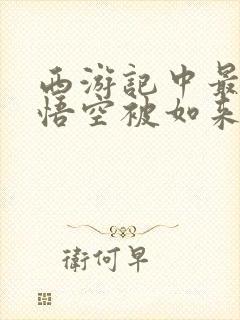 西游記中最
悟空被如来
衛何早